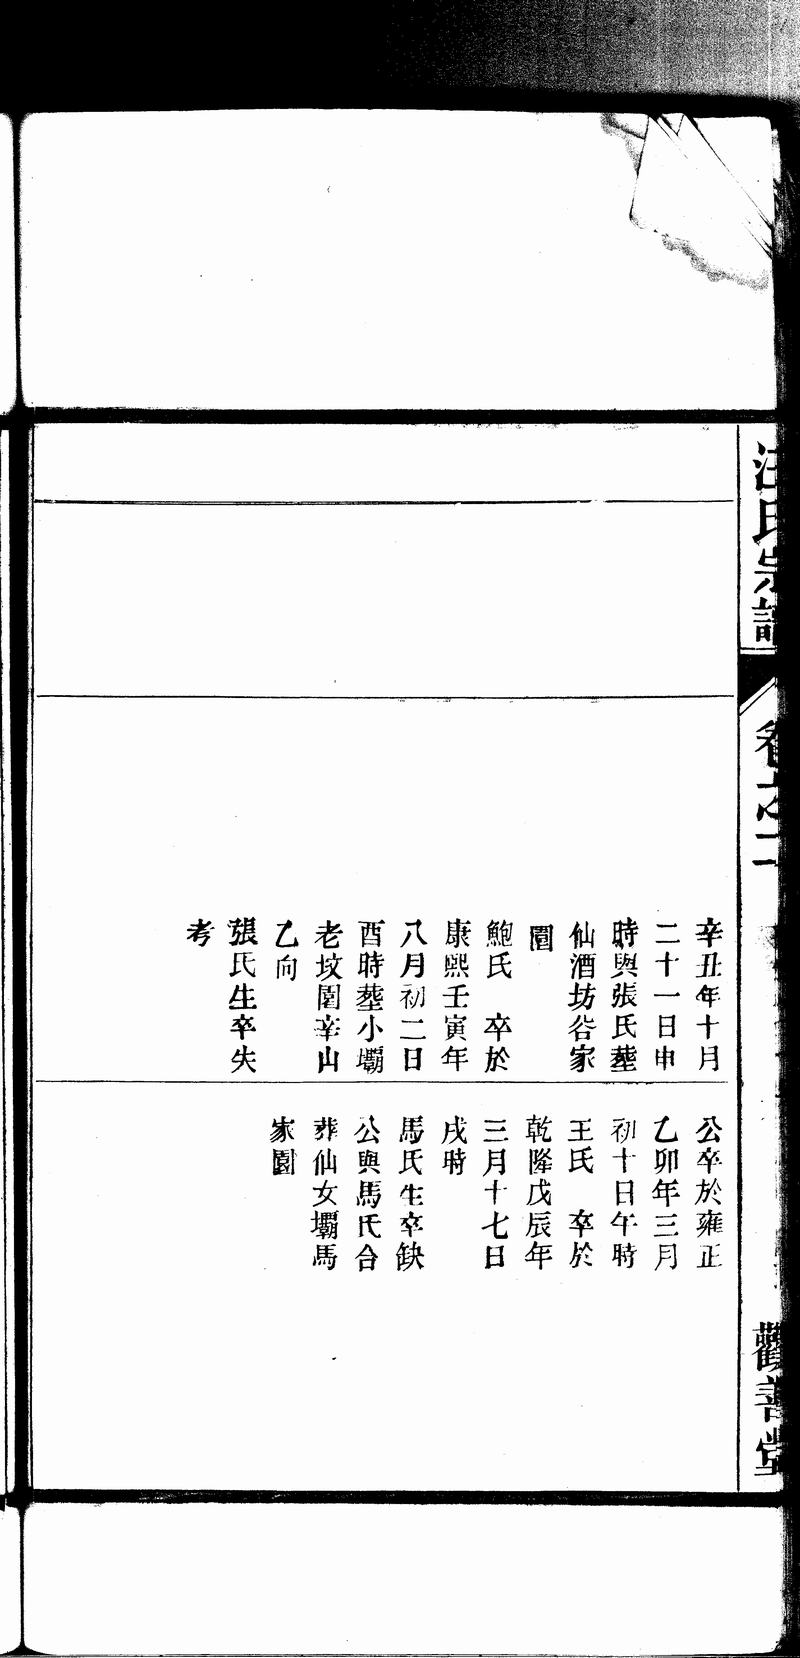 汪氏宗譜
卷之二
觀善堂
辛丑年十月
二十一日申
時與張氏塟
仙酒坊谷家
圍
鮑氏　卒於
康熙壬寅年
八月初二日
酉時塟小壩
老坟圍辛山
乙向
張氏生卒失
考
公卒於雍正
乙卯年三月
初十日午時
王氏　卒於
乾隆戊辰年
三月十七日
戌時
馬氏生卒缺
公與馬氏合
葬仙女壩馬
家園